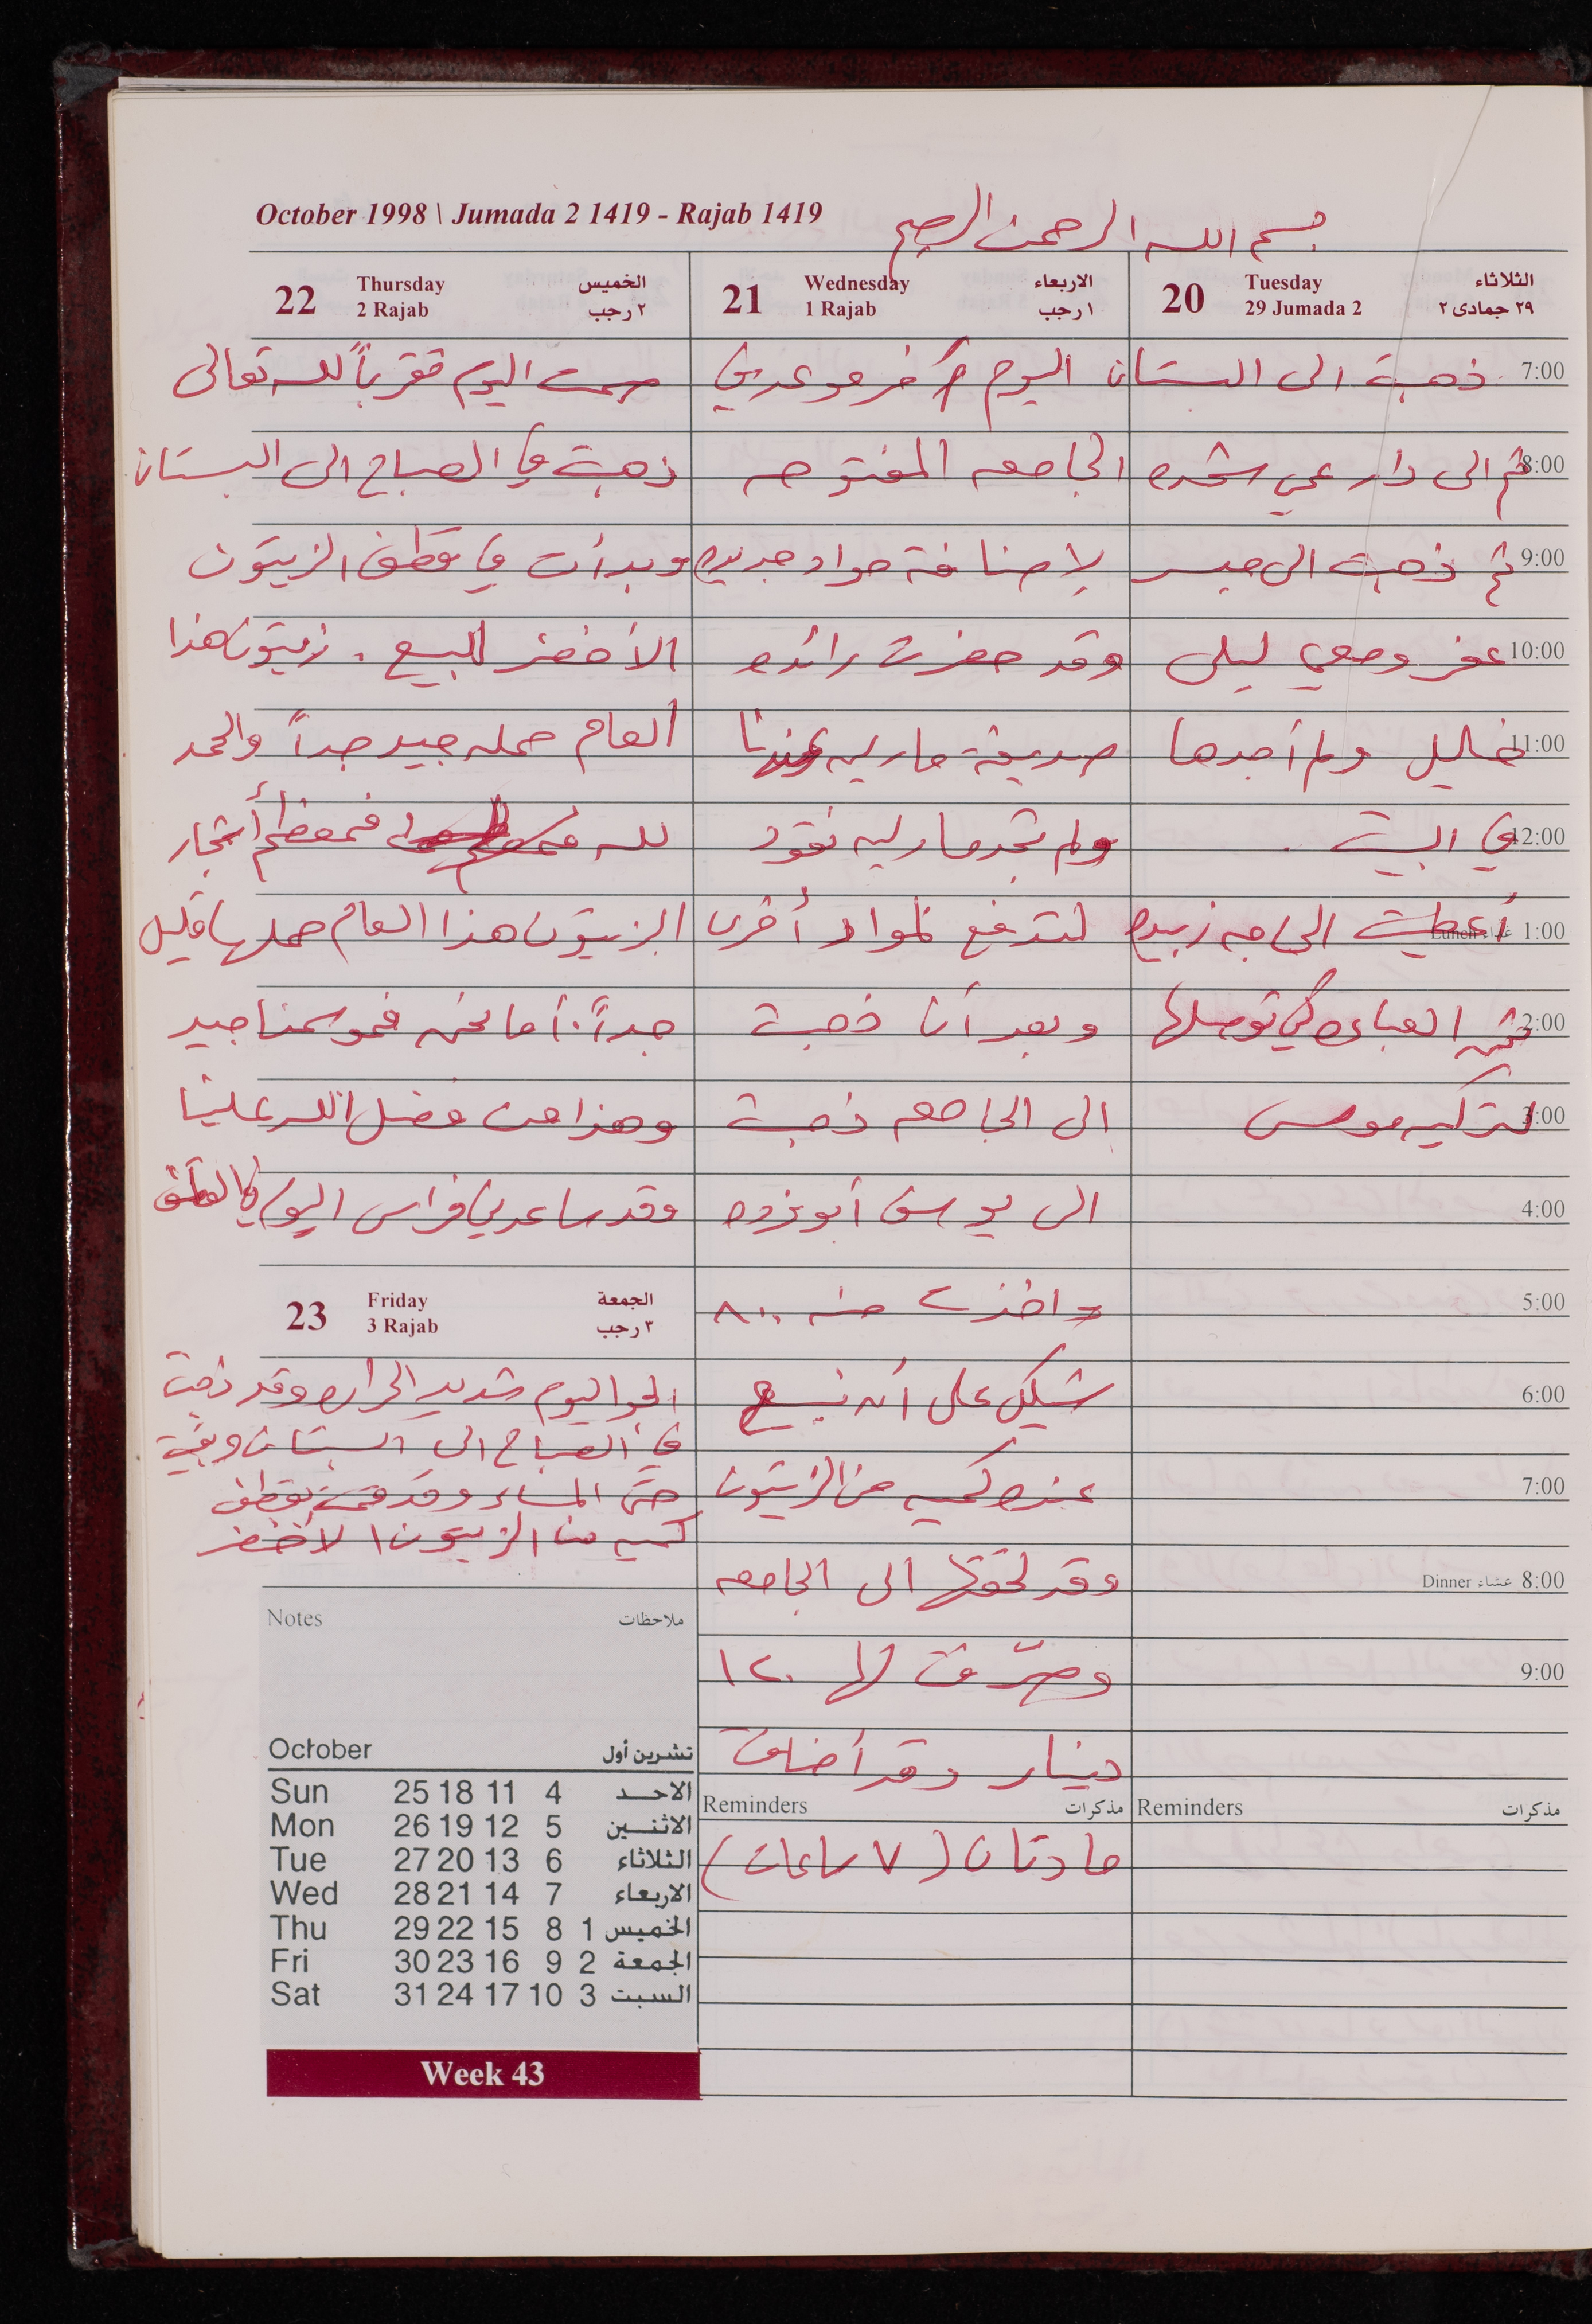 October 1998 \ Jumada 2 1419 - Rajab 1419
بسم الله الرحمن الرحيم
20 Tuesday الثلاثاء
29 Jumada 2 ٢٩ جمادى ٢
7:00 ذهبت الى البستان
8:00 ثم الى دار عمي شحده
9:00 ثم ذهبت الى جسر
10:00 عفر ومعي ليلى
11:00 خليل ولم أجدها
12:00 في البيت .
Lunch غداء 1:00 أعطيت الحاجه زبيده
2:00 ثمن العباءه لكي توصلها
3:00 لتركيه موسى
4:00
5:00
6:00
7:00
Dinner عشاء 8:00
9:00
Reminders مذكرات
21 Wednesday الاربعاء
1 Rajab ١ رجب
اليوم آخر موعد في
الجامعه المفتوحه
لإضافة مواد جديده
وقد حضرت رائده
صديقة ماريه عندنا
ولم تجد ماريه نقود
لتدفع لمواد أخرى
وبعد أن ذهبت
الى الجامعه ذهبت
الى يوسف أبو نزوه
واخذت منه ٨٠٠
شيكل على أن نبيع
عنده كميه من الزيتون
وقد لحقتها الى الجامعه
وصرّفت لها ١٢٠
دينار وقد أضافت
Reminders مذكرات
مادتان (٧ ساعات)
22 Thursday الخميس
2 Rajab ٢ رجب
صمت اليوم تقرباً لله تعالى
ذهبت في الصباح الى البستان
وبدأت في قطف الزيتون
الأخضر للبيع . زيتون هذا
العام حمله جيد جداً والحمد
لله فمعظم أشجار
الزيتون هذا العام حملها قليل
جداً . أما نحن فموسمنا جيد
وهذا من فضل الله علينا
وقد ساعدني فراس اليوم في القطف
23 Friday الجمعة
3 Rajab ٣ رجب
الجو اليوم شديد الحراره وقد ذهبت
في الصباح الى البستان وبقيت
حتى المساء وقد قمت بقطف
كميه من الزيتون الأخضر
Notes ملاحظات
October تشرين أول
Sun 25 18 11 4 الاحـــد
Mon 26 19 12 5 الاثنــين
Tue 27 20 13 6 الثلاثاء
Wed 28 21 14 7 الاربعاء
Thu 29 22 15 8 1 الخميس
Fri 30 23 16 9 2 الجمعة
Sat 31 24 17 10 3 السبت
Week 43